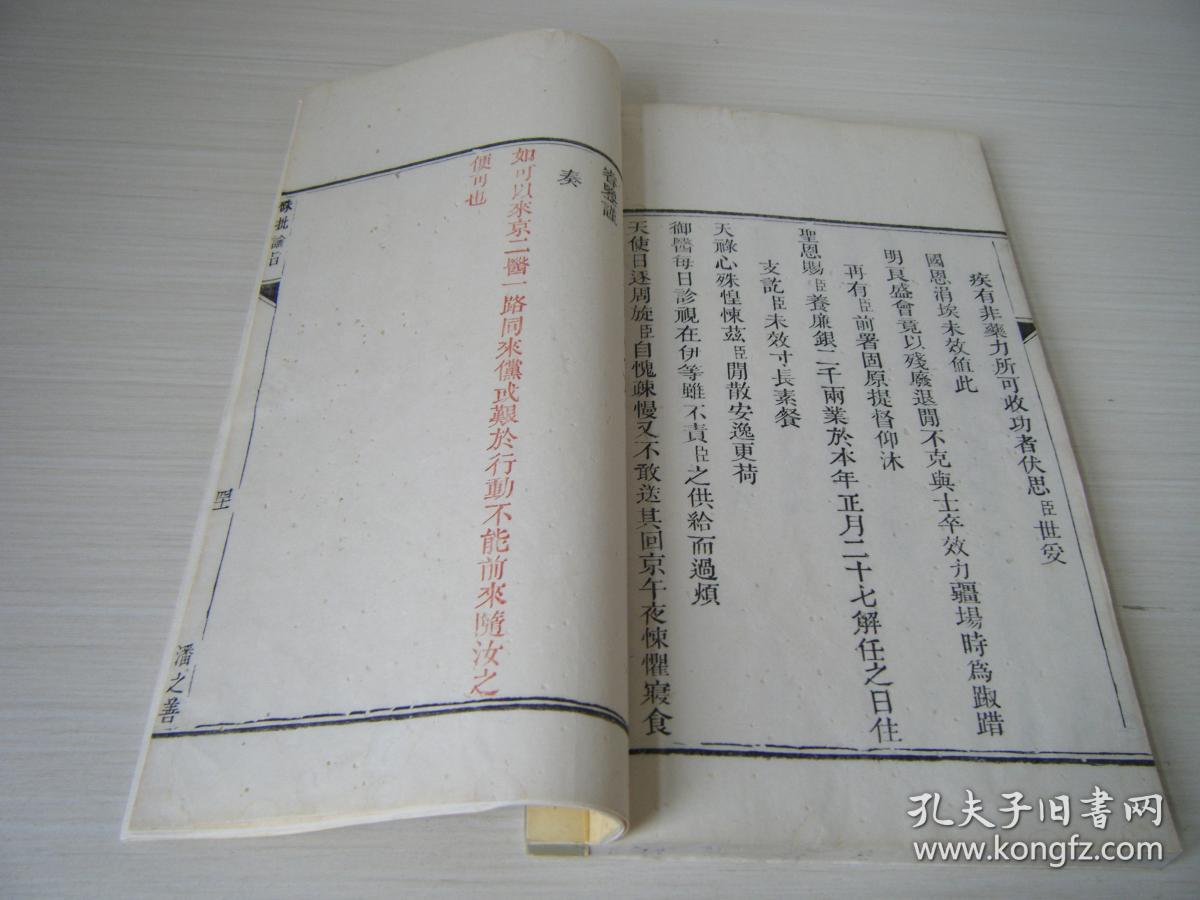 疾有非藥力所可收功者伏思臣世受
國恩涓埃未效値此
明良盛會竟以殘廢退閒不克與士卒效力疆場時爲踧踖
再有臣前署固原提督仰沐
聖恩賜臣養廉銀二千兩業於本年正月二十七解任之日住
支訖臣未效寸長素餐
天祿心殊惶悚茲臣閒散安逸更荷
御醫每日診視在伊等雖不責臣之供給而過煩
天使日逐周旋臣自愧疎慢又不敢送其回京午夜悚懼寢食
奏
如可以來京二醫一路同來儻或艱於行動不能前來隨汝之
便可也
硃批諭旨
潘之善
孔夫子旧书网
www.kongfz.com